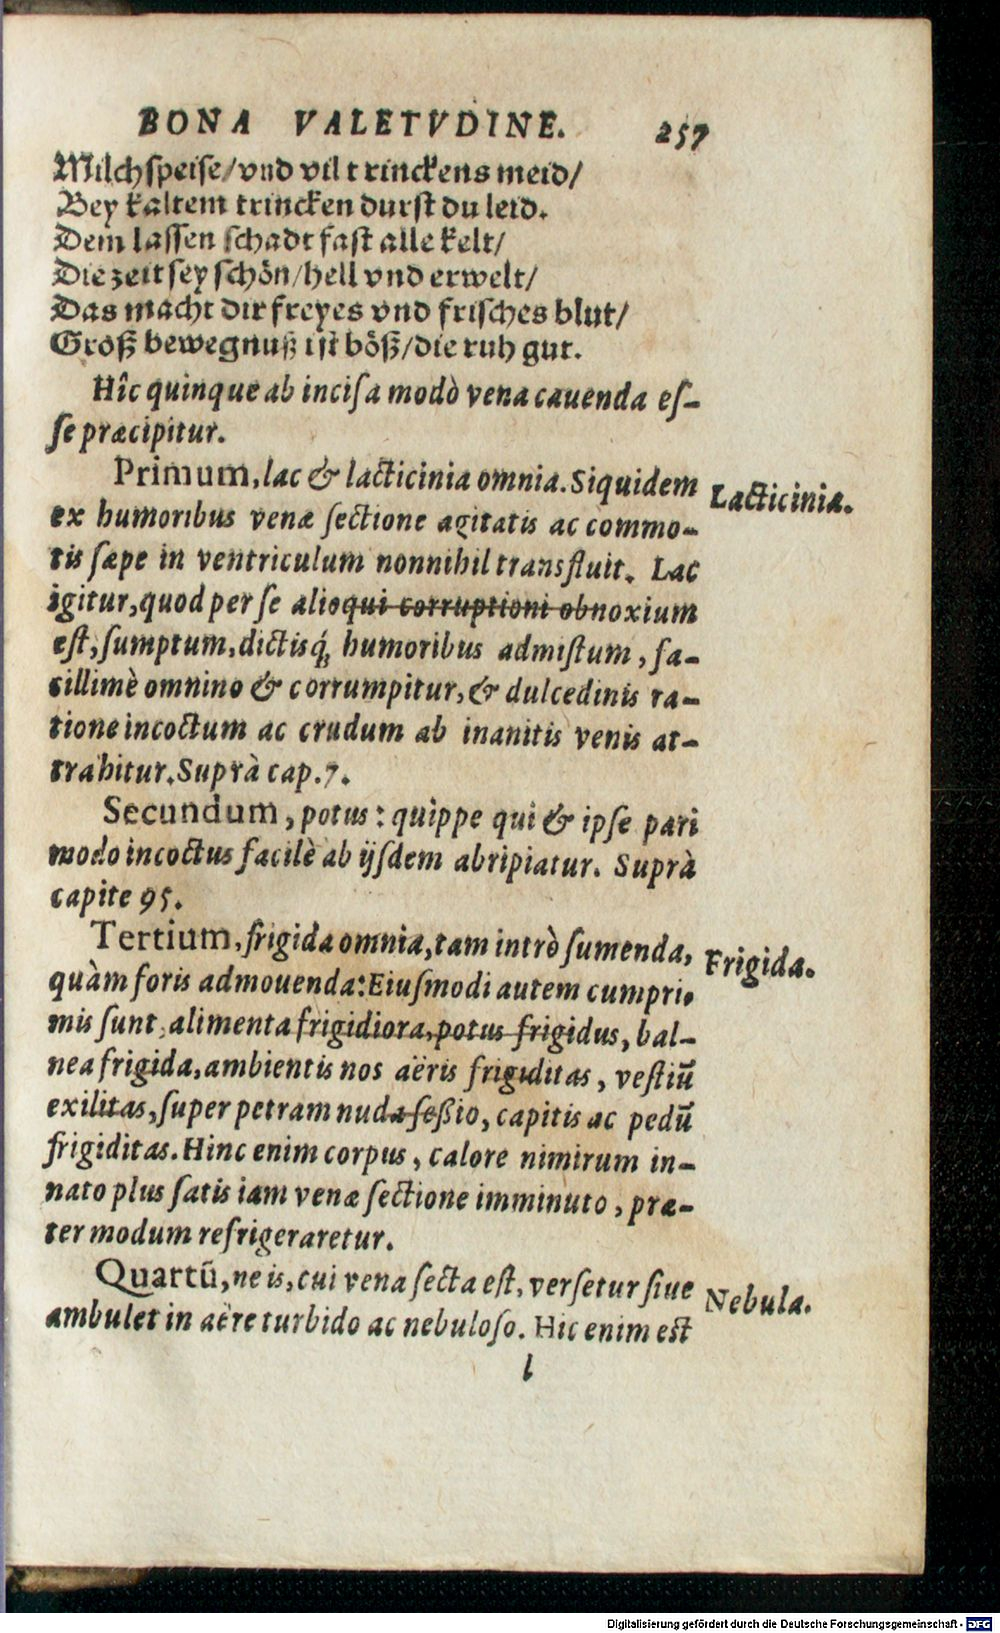 BONA VALETVDINE. 257
Milchspeise/vnd vil trinckens meid/
Bey kaltem trincken durst du leid.
Dem lassen schadt fast alle kelt/
Die zeit sey schön/hell vnd erwelt/
Das macht dir freyes vnd frisches blut/
Groß bewegnuß ist böß/die ruh gut.
Hîc quinque ab incisa modò vena cauenda es-
se præcipitur.
Primum, lac & lacticinia omnia. Siquidem
Lacticinia.
ex humoribus venæ sectione agitatis ac commo-
tis sæpe in ventriculum nonnihil transfluit. Lac
igitur, quod per se alioqui corruptioni obnoxium
est, sumptum, dictisq́; humoribus admistum, fa-
cillimè omnino & corrumpitur, & dulcedinis ra-
tione incoctum ac crudum ab inanitis venis at-
trahitur. Suprà cap. 7.
Secundum, potus: quippe qui & ipse pari
modo incoctus facilè ab ijsdem abripiatur. Suprà
capite 95.
Tertium, frigida omnia, tam intrò sumenda,
Frigida.
quàm foris admouenda: Eiusmodi autem cumpri-
mis sunt, alimenta frigidiora, potus frigidus, bal-
nea frigida, ambientis nos aëris frigiditas, vestiũ
exilitas, super petram nuda seßio, capitis ac pedũ
frigiditas. Hinc enim corpus, calore nimirum in-
nato plus satis iam venæ sectione imminuto, præ-
ter modum refrigeraretur.
Quartũ, ne is, cui vena secta est, versetur siue
Nebula.
ambulet in aëre turbido ac nebuloso. Hic enim est
l
Digitalisierung gefördert durch die Deutsche Forschungsgemeinschaft - DFG